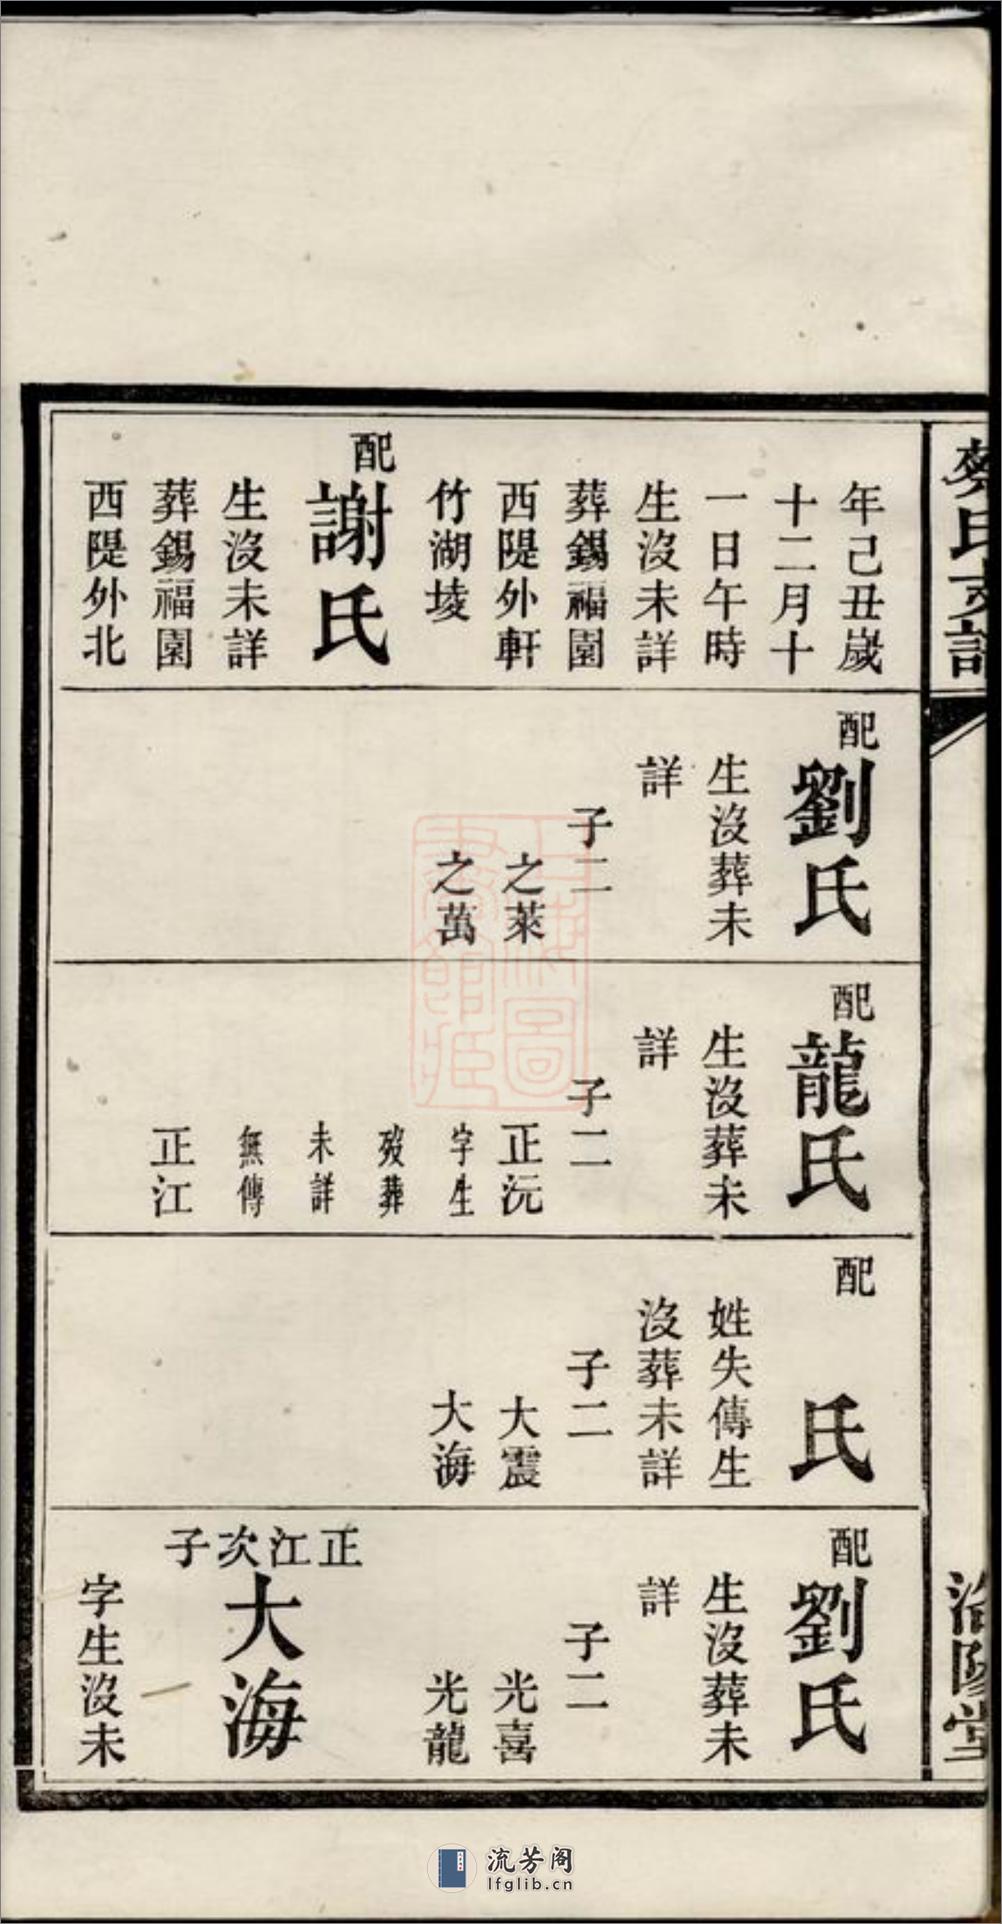 年己丑嵗
十二月十
一日午時
生沒未詳
葬錫福園
西隄外軒
竹湖堎
配
謝氏
生沒未詳
葬錫福園
西隄外北
配
劉氏
生沒葬未
詳
子二
之萊
之萬
配
龍氏
生沒葬未
詳
子二
正沅
字生
歿葬
未詳
無傳
正江
配
氏
姓失傳生
沒葬未詳
子二
大震
大海
配
劉氏
生沒葬未
詳
子二
光喜
光龍
正江次子
大海
字生沒未
流芳阁
lfglib.cn